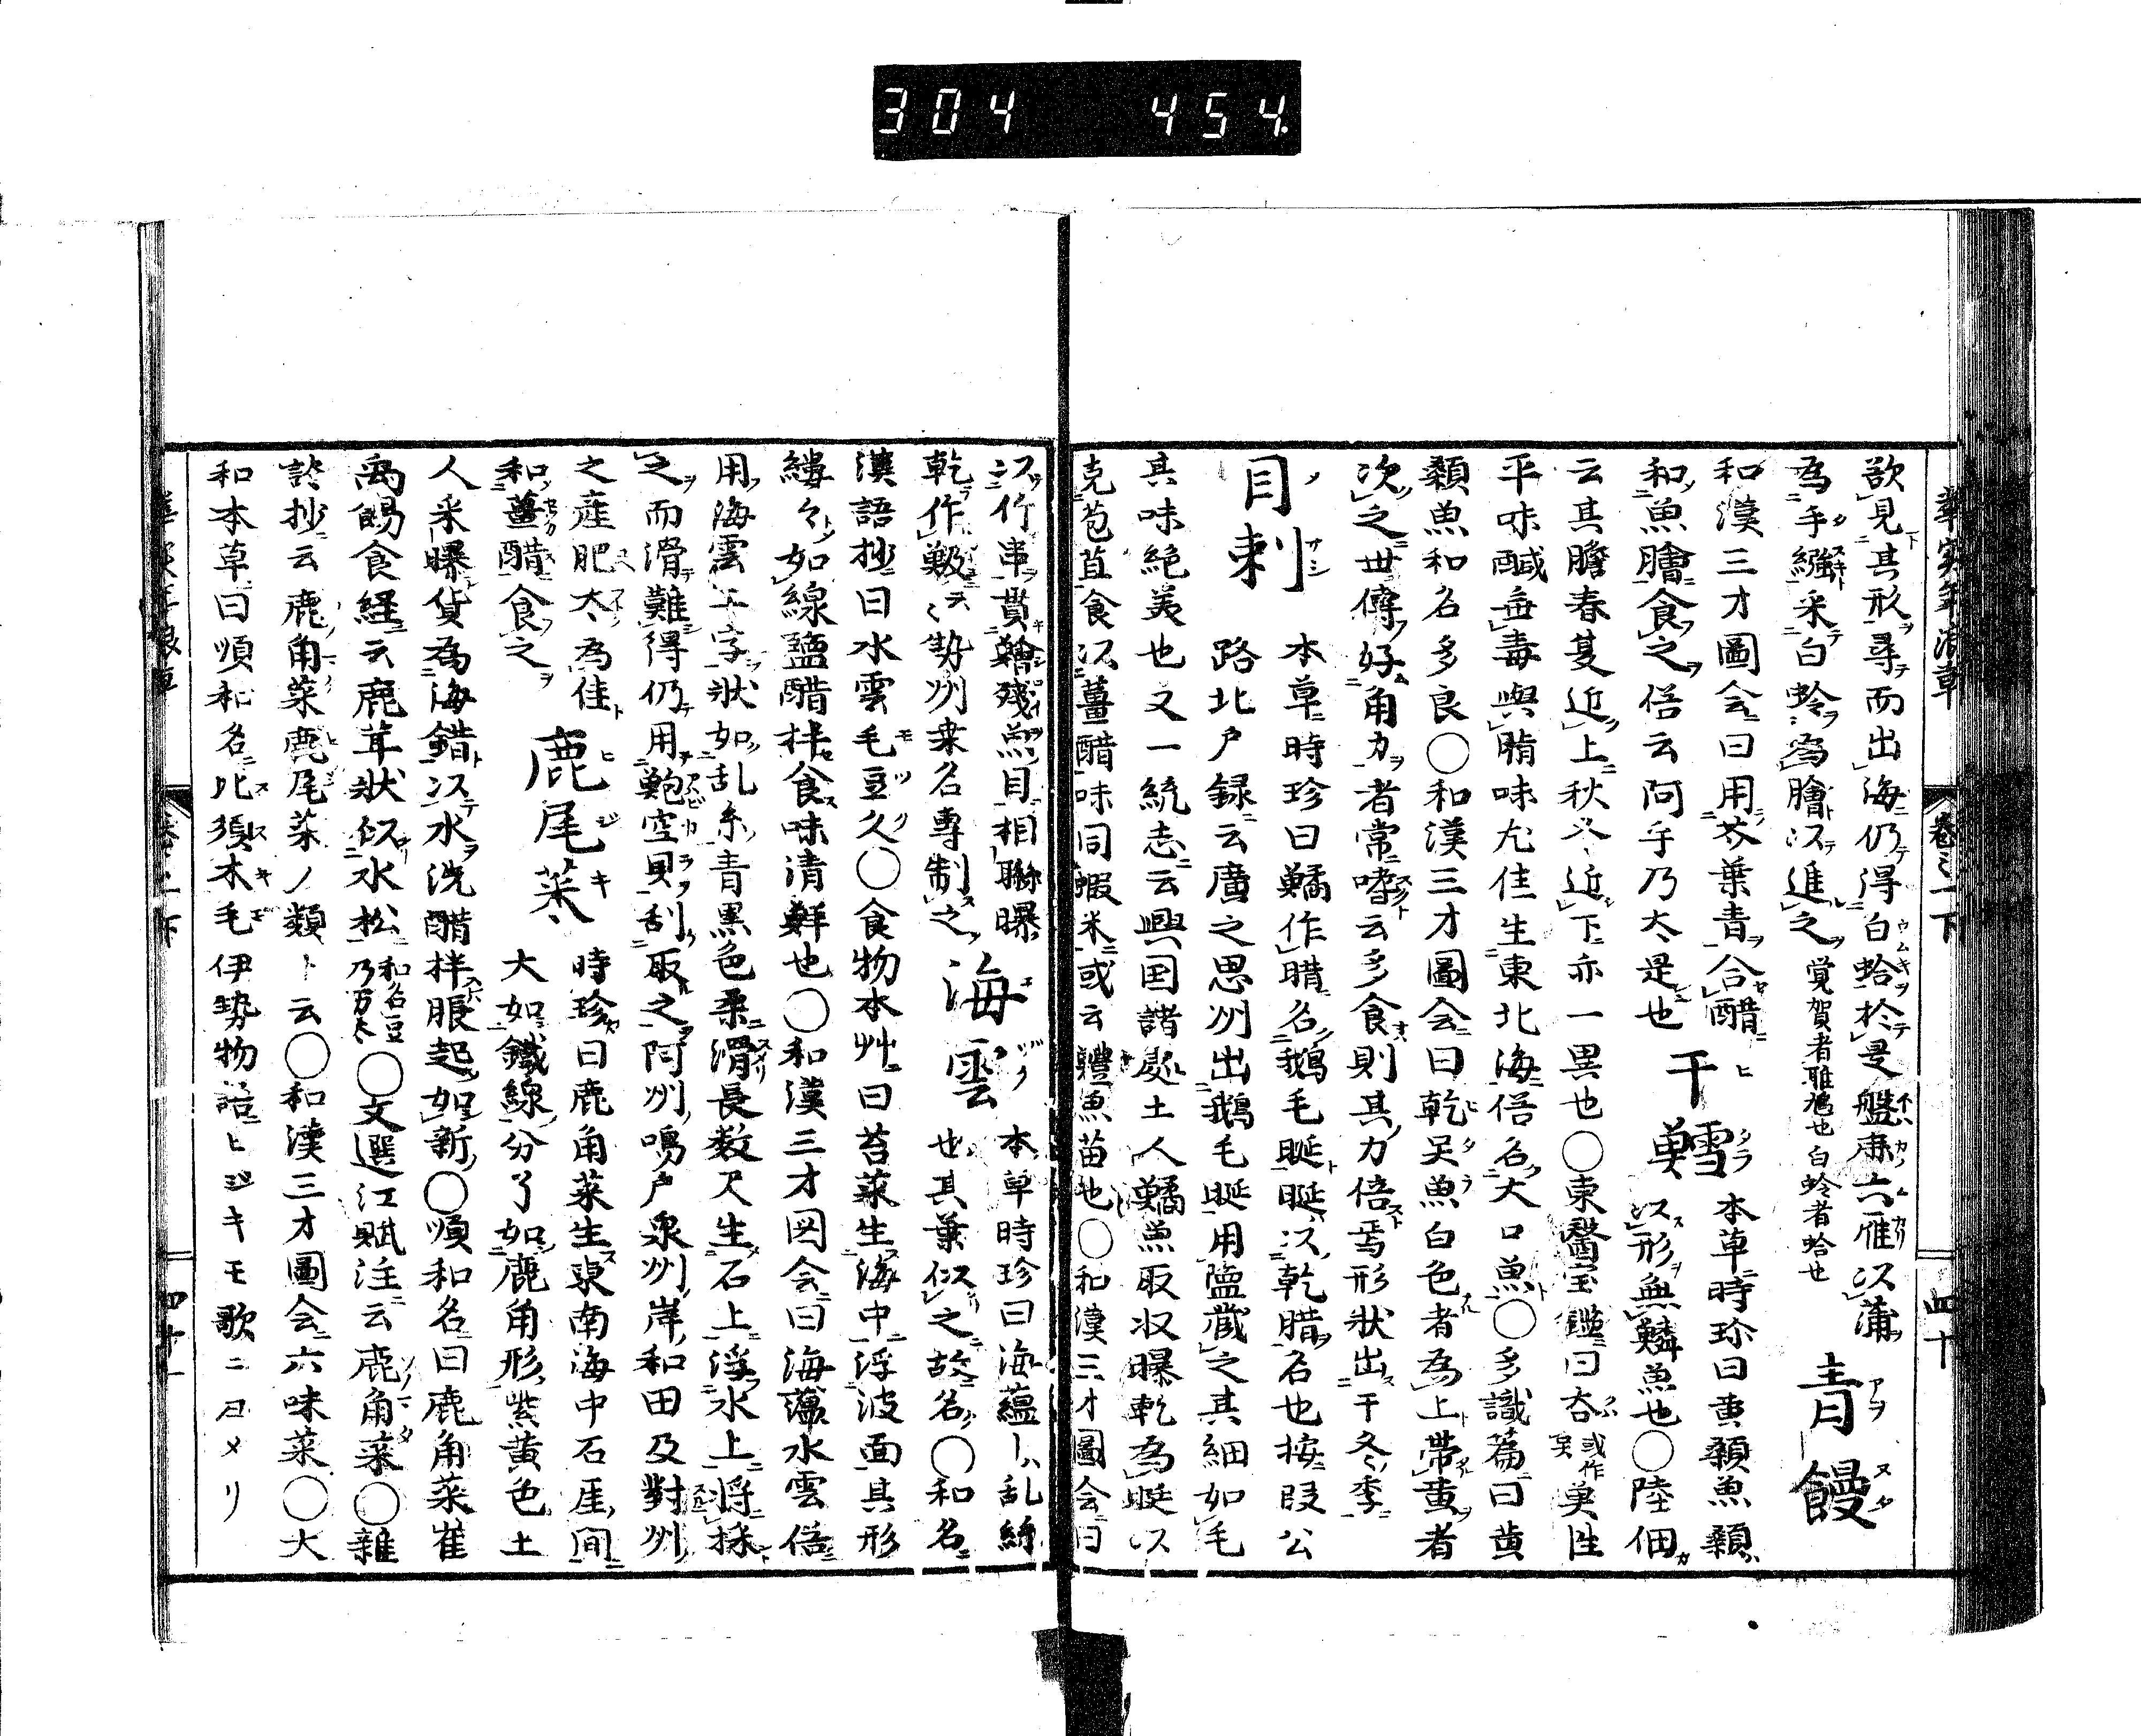 304 454
華実年浪草 巻之一下 四十
欲見其形尋而出海仍得白蛤於是盤鹿六雁以蒲
為手繦采白蛤為膾以進之 覚賀者雎鳩也白蛤者蛤也 青饅
和漢三才圖会曰用芥葉青合醋
和魚膾食之俗云阿乎乃太是也 干鱈 本草時珍曰黄顙魚顙
云其膽春夏近上秋冬近下亦一異也〇東醫宝鑑曰夻 或作㕦 㚖性
平味醎無毒與脯味尤佳生東北海俗名大口魚〇多識篇曰黄
顙魚和名多良〇和漢三才圖会曰乾㕦魚白色者為上帯黄者
次之世傳好角力者常嗜云多食則其力倍焉形状出干冬季
目刺 本草時珍曰鱊作腊名鵝毛脡脡以乾腊名也按段公
路北戸録云廣之恩州出鵝毛脡用塩蔵之其細如毛
其味絶美也又一統志云興国諸處土人鱊魚取收曝乾為脡以
充苞苴食以薑醋味同蝦米或云鱧魚苗也〇和漢三才圖会曰
以竹串貫鱠残魚目相聯曝
乾作鮿勢州桒名專制之 海雲 本草時珍曰海蘊ハ乱絲
也其葉似之故名〇和名
漢語抄曰水雲毛豆久〇食物本艸曰苔菜生海中浮波面其形
縷々如線鹽醋拌食味清鮮也〇和漢三才図会曰海薀水雲俗
用海雲二字状如乱糸青黒色柔滑長数尺生石上浮水上将採
之而滑難得仍用鮑空貝刮取之阿州鳴戸泉州岸和田及對州
之産肥大為佳
和薑醋食之 鹿尾菜 時珍曰鹿角菜生東南海中石厓間
大如鐵線分丫如鹿角形紫黄色土
人采曝貨為海錯以水洗醋拌脹起如新〇順和名曰鹿角菜崔
禹錫食経云鹿茸状似水松 和名豆乃万太 〇文選江賦注云鹿角菜〇雜
談抄云鹿角菜鹿尾菜ノ類ト云〇和漢三才圖会六味菜〇大
和本草曰順和名比須木毛伊勢物語ヒジキモ歌ニヨメリ